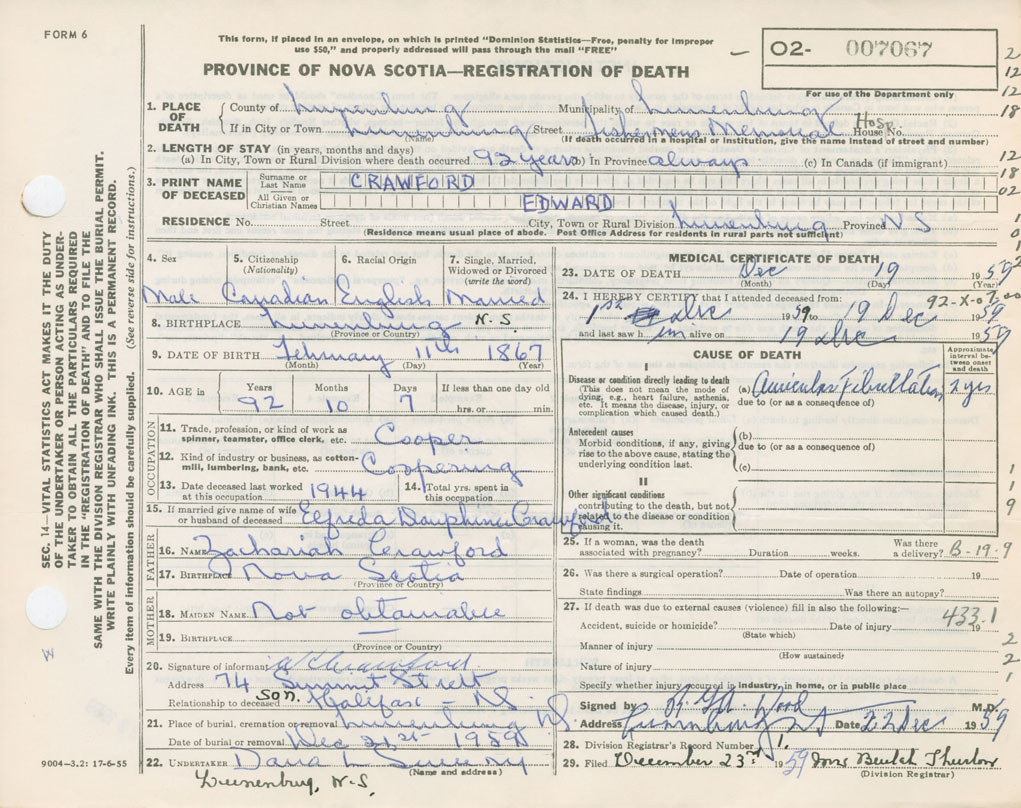 FORM 6
This form, if placed in an envelope, on which is printed "Dominion Statistics—Free, penalty for improper
use $50," and properly addressed will pass through the mail "FREE"
PROVINCE OF NOVA SCOTIA—REGISTRATION OF DEATH
O2- 007067
For use of the Department only
1. PLACE OF DEATH
County of Lunenburg Municipality of Lunenburg
If in City or Town Lunenburg Street Fishermens Memorial House No. Hosp
(Name) (If death occurred in a hospital or institution, give the name instead of street and number)
2. LENGTH OF STAY (in years, months and days)
(a) In City, Town or Rural Division where death occurred 92 years (b) In Province always (c) In Canada (if immigrant)
3. PRINT NAME OF DECEASED
Surname or Last Name CRAWFORD
All Given or Christian Names EDWARD
RESIDENCE No. Street City, Town or Rural Division Lunenburg Province NS
(Residence means usual place of abode. Post Office Address for residents in rural parts not sufficient)
4. Sex 5. Citizenship (Nationality) 6. Racial Origin 7. Single, Married, Widowed or Divorced (write the word)
Male Canadian English Married
8. BIRTHPLACE Lunenburg N.S.
(Province or Country)
9. DATE OF BIRTH February 11th 1867
(Month) (Day) (Year)
10. AGE in Years Months Days If less than one day old
92 10 7 hrs. or min.
OCCUPATION
11. Trade, profession, or kind of work as spinner, teamster, office clerk, etc. Cooper
12. Kind of industry or business, as cotton-mill, lumbering, bank, etc. Coopering
13. Date deceased last worked at this occupation 1944 14. Total yrs. spent in this occupation
15. If married give name of wife or husband of deceased Elfreda Dauphinee Crawford
FATHER
16. NAME Zachariah Crawford
17. BIRTHPLACE Nova Scotia
(Province or Country)
MOTHER
18. MAIDEN NAME Not obtainable
19. BIRTHPLACE —
(Province or Country)
20. Signature of informant Crawford
Address 74 Summit Street
Relationship to deceased son. Halifax - NS
21. Place of burial, cremation or removal Lunenburg NS
Date of burial or removal Dec 21st 1959
22. UNDERTAKER Dana L. Sweeny
(Name and address)
Lunenburg, N.S.
9004—3.2: 17-6-55
MEDICAL CERTIFICATE OF DEATH
23. DATE OF DEATH Dec 19 1959
(Month) (Day) (Year)
92-X-07.00
24. I HEREBY CERTIFY that I attended deceased from:
1st Dec 1959 to 19 Dec 1959
and last saw him alive on 19 Dec 1959
CAUSE OF DEATH
Approximate interval between onset and death
I
Disease or condition directly leading to death (a) Auricular Fibrillation 2 yrs
(This does not mean the mode of dying, e.g., heart failure, asthenia, etc. It means the disease, injury, or complication which caused death.)
due to (or as a consequence of)
Antecedent causes (b)
Morbid conditions, if any, giving rise to the above cause, stating the underlying condition last.
due to (or as a consequence of)
(c)
II
Other significant conditions
contributing to the death, but not related to the disease or condition causing it.
25. If a woman, was the death associated with pregnancy? Duration weeks. Was there a delivery? B-19-9
26. Was there a surgical operation? Date of operation 19
State findings Was there an autopsy?
27. If death was due to external causes (violence) fill in also the following:— 433.1
Accident, suicide or homicide? Date of injury 19
(State which)
Manner of injury
(How sustained)
Nature of injury
Specify whether injury occurred in industry, in home, or in public place
Signed by Wood M.D.
Address Lunenburg NS Date 22 Dec 1959
28. Division Registrar's Record Number 1.
29. Filed December 23rd 1959 Mrs Beulah Thurlow
(Division Registrar)
SEC. 14—VITAL STATISTICS ACT MAKES IT THE DUTY
OF THE UNDERTAKER OR PERSON ACTING AS UNDER-
TAKER TO OBTAIN ALL THE PARTICULARS REQUIRED
IN THE "REGISTRATION OF DEATH" AND TO FILE THE
SAME WITH THE DIVISION REGISTRAR WHO SHALL ISSUE THE BURIAL PERMIT.
WRITE PLAINLY WITH UNFADING INK. THIS IS A PERMANENT RECORD.
Every item of information should be carefully supplied. (See reverse side for instructions.)
2
12
12
18
12
18
02
1
0
1
2
1
1
9
2
2
1